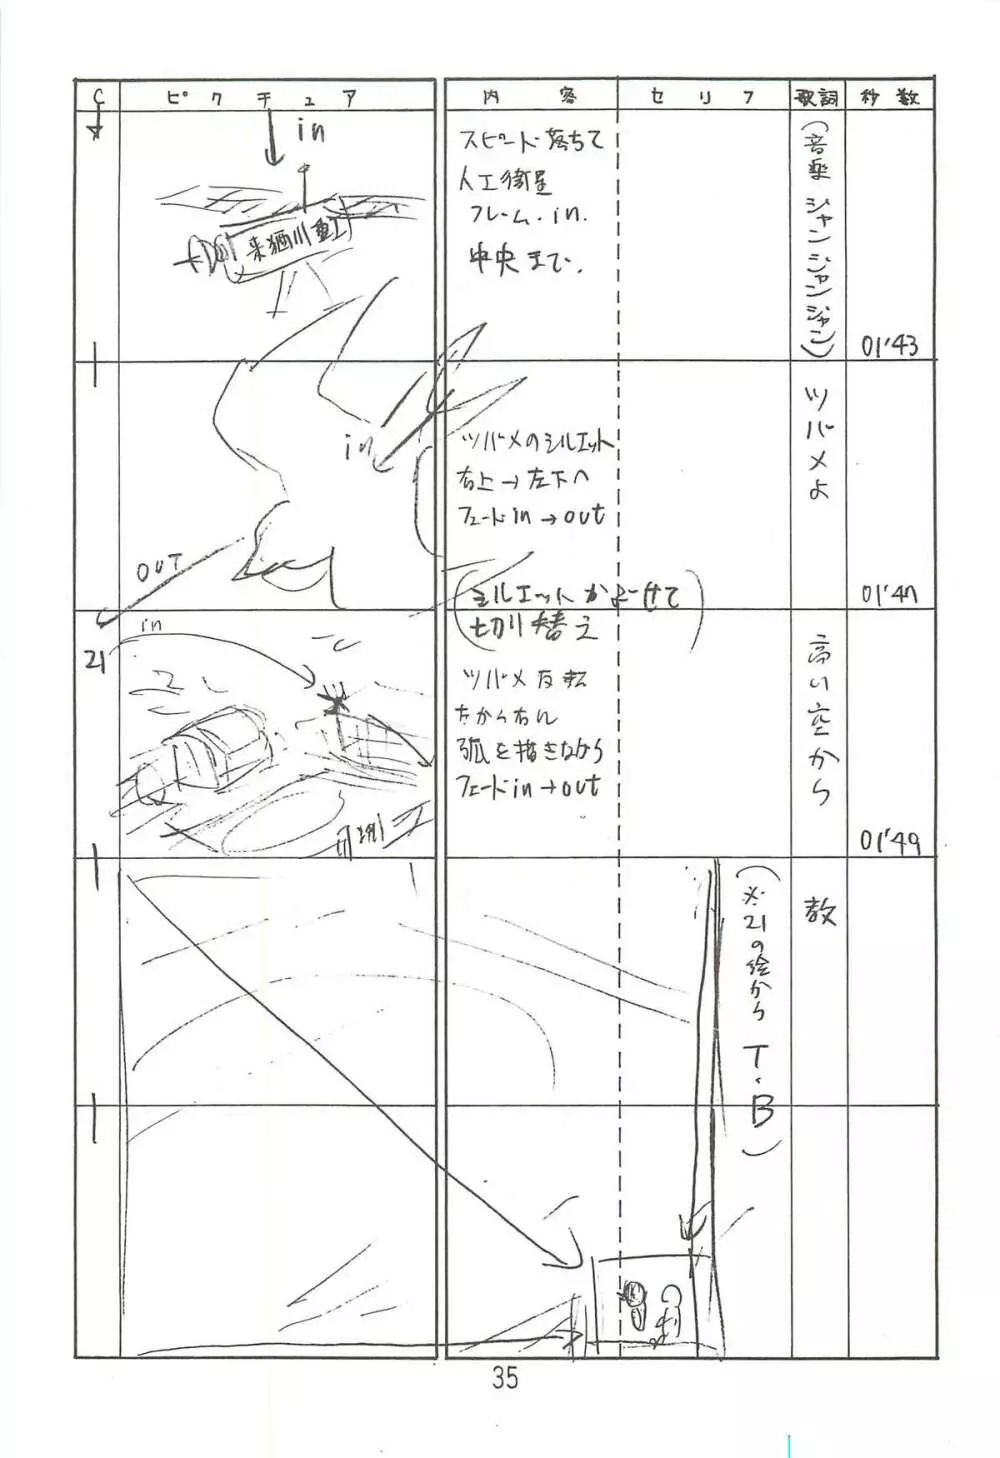 C ピクチュア 内容 セリフ 歌詞 秒数
in
来栖川重工
スピード落ちて
人工衛星
フレーム・in.
中央まで.
(音楽 ジャンジャンジャン)
01'43
in
OUT
ツバメのシルエット
右上→左下へ
フェードin→out
ツバメよ
01'47
(シルエットかよーけて
切り替え)
21
in
ツバメ反転
左から右へ
弧を描きながら
フェードin→out
高い空から
01'49
(※21の絵から T・B)
教
35